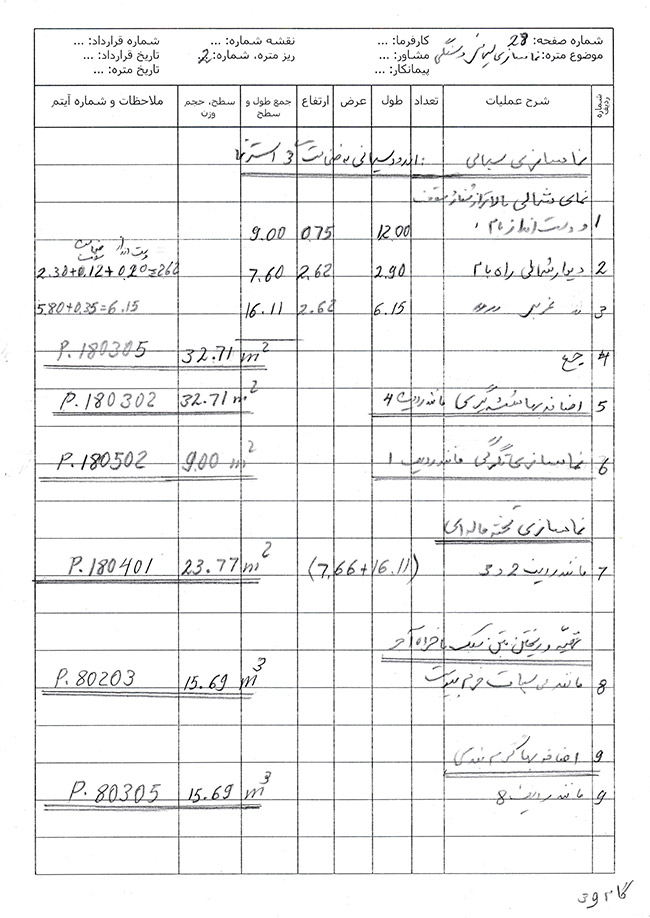 شماره صفحه: 28 کارفرما: ... نقشه شماره: ... شماره قرارداد: ...
موضوع متره: نماسازی سیمانی و سنگی مشاور: ... ریز متره، شماره: 2 تاریخ قرارداد: ...
پیمانکار: ... تاریخ متره: ...
شماره ردیف شرح عملیات تعداد طول عرض ارتفاع جمع طول و سطح سطح، حجم وزن ملاحظات و شماره آیتم
نماسازی سیمانی : اندود سیمانی به ضخامت 3 سانتر
نمای شمالی بالاتر از
1 و دست انداز بام 12.00 0.75 9.00
دست انداز ضخامت سقف
2 دیوار شمالی راه بام 2.90 2.62 7.60 2.30+0.12+0.20=262
3 غربی 6.15 2.62 16.11 5.80+0.35=6.15
4 جمع 32.71 m² P.180305
5 اضافه بها شیشه گیری مانند ردیف 4 32.71 m² P.180302
6 نماسازی تگرگی مانند ردیف 1 9.00 m² P.180502
نماسازی تخته ماله ای
7 مانند ردیف 2 و 3 (7.66+16.11) 23.77 m² P.180401
تهیه و ریختن بتن سبک با خرده آجر
8 مانند 15.69 m³ P.80203
9 اضافه بها کرم بندی
9 مانند ردیف 8 15.69 m³ P.80305